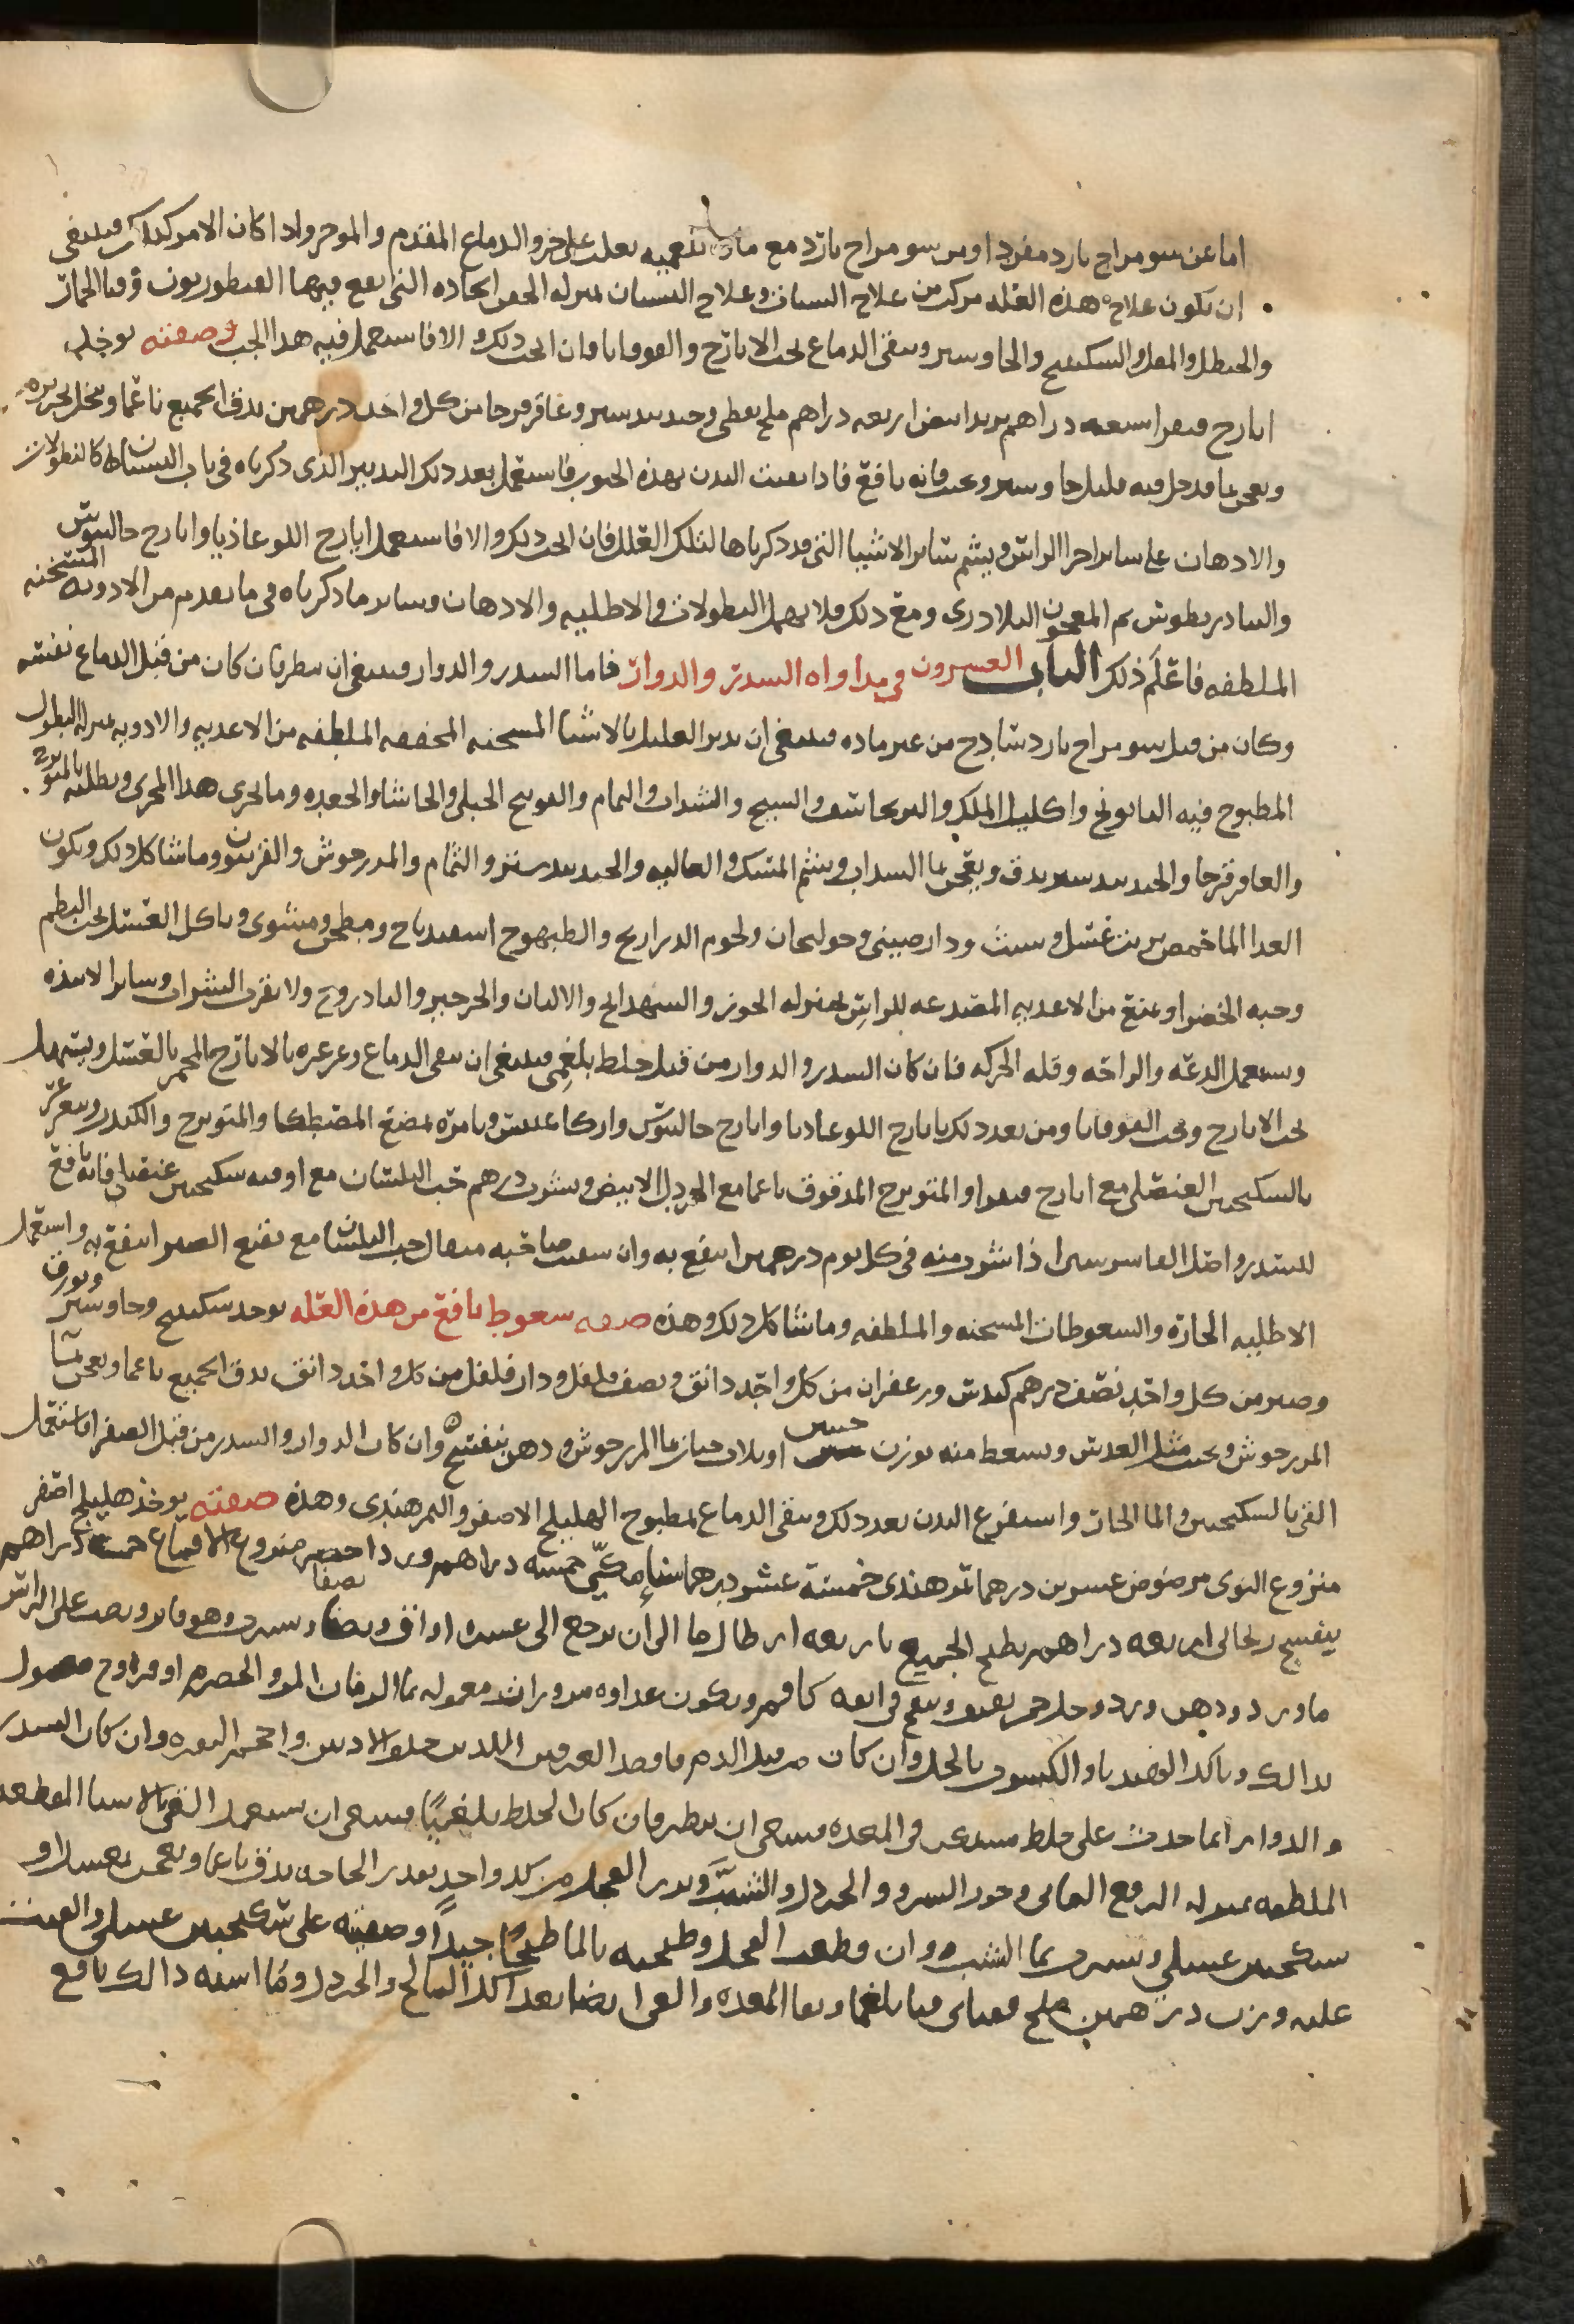 اما عن سو مزاج بارد مفرد او من سو مزاج بارد مع مادة بلغميه تغلب على جزو الدماع المقدم والموخر واذا كان الامر كذلك فينبغى
ان يكون علاج هذه العله مركب من علاج السبات وعلاج النسيان بمنزله الحقن الحاده التى يقع فيها القنطوريون وقثا الحمار
والحنظل والمقل والسكبينج والجاوشير وينقى الدماع بحب الايارج والقوقايا فان انجب ذلك والا فاستعمل فيه هذا الحب وصفته يوخذ
ايارج فيقرا سبعه دراهم تربد ابيض اربعه دراهم ملح نفطى وجندبيدستر وعاقرقرحا من كل واحد درهمين يدق الجميع ناعما وينخل بحريره
ويعجن بما قد حل فيه قليل جاوشير ويحبب فانه نافع فاذا نقيت البدن بهذه الحبوب فاستعمل بعد ذلك التدبير الذى ذكرناه فى باب النسيان كالنطولات
والادهان على ساير اجزا الراس ويشم ساير الاشيا التى قد ذكرناها لتلك العلل فان انجب ذلك والا فاستعمل ايارج اللوغاذيا وايارج جالينوس
والتيادريطوس ثم المعجون البلادرى ومع ذلك فلا تهمل النطولات والاطليه والادهان وساير ما ذكرناه فى ما تقدم من الادويه المسخنه
الملطفه فاعلم ذلك الباب العشرون فى مداواه السدر والدوار فاما السدر والدوار فينبغى ان ينظر فان كان من قبل الدماع نفسه
وكان من قبل سو مزاج بارد ساذج من غير ماده فينبغى ان يدبر العليل بالاشيا المسخنه المجففه الملطفه من الاغذيه والادويه بمنزله النطول
المطبوخ فيه البابونج واكليل الملك والبرنجاسف والشيح والسداب والنمام والفوتنج الجبلى والحاشا والجعده وما يجرى هذا المجرى ويطليه بالميويزج
والعاقرقرحا والجندبيدستر يدق ويعجن بما السداب ويشم المسك والغاليه والجندبيدستر والنمام والمرزجوش والفربيون وما شاكل ذلك ويكون
الغدا الما حمص بزيت غسل وشبت ودارصينى وخولنجان ولحوم الدراريج والطيهوج اسفيدباج ومطجن ومشوى وياكل العسل بحب البطم
وحبه الخضرا ويمنع من الاغذيه المصدعه للراس بمنزله الجوز والشهدانج والالبان والجرجير والبادروج ولا يقرب الشراب وساير الانبذه
ويستعمل الدعه والراحه وقله الحركه فان كان السدر والدوار من قبل خلط بلغمى فينبغى ان ينقى الدماع وغرغره بالايارج المخمر بالعسل ويسهل
بحب الايارج وبحب القوقايا ومن بعد ذلك بايارج اللوغاديا وايارج جالينوس واركاغانيس ويامره بمضغ المصطكا والميويزج والكندر ويتغرغر
بالسكنجبين العنصلى مع ايارج فيقرا والميويزج المدقوق ناعما مع الخردل الابيض وبشرب درهم حب البلسان مع اوقيه سكنجبين عنصلى فانه نافع
للسدر واصل الفاشرشين اذا شرب منه فى كل يوم درهمين انتفع به وان سقيت صاحبه مثقال حب البلسان مع نقيع الصبر انتفع به واستعمل
الاطليه الحاره والسعوطات المسخنه والملطفه وما شاكل ذلك وهذه صفه سعوط نافع من هذه العله يوخذ سكبينج وجاوشير وبورق
وصبر من كل واحد نصف درهم كندس وزعفران من كل واحد دانق ونصف فلفل ودار فلفل من كل واحد دانق يدق الجميع ناعما ويعجن بما
المرزجوش ويحبب مثل العدس ويسعط منه بوزن حبتين او ثلاث حبات بما المرزجوش ودهن بنفسج وان كان الدوار والسدر من قبل الصفرا فاستعمل
القى بالسكنجبين والما الحار واستفرغ البدن بعد ذلك وينقى الدماع بمطبوخ الهليلج الاصفر والتمر هندى وهذه صفته يوخذ هليلج اصفر
منزوع النوى مرضوض عشرين درهما تمر هندى خمسة عشر درهما سنا مكى خمسه دراهم ورد احمر منزوع الاقماع خمسه دراهم
بنفسج ريحانى اربعه دراهم يطبخ الجميع باربعه ارطال ما الى ان يرجع الى عشره اواق ونصف نصفا ويشرب وهو فاتر ويصب على الراس
ما ورد ودهن ورد وخل خمر ثقيف وينفخ فى انفه كافور ويكون غداوه مزورات معموله بما الرمان المز والحصرم او فروج معمول
بذالك وياكل الهندبا والكسبره بالخل وان كان من قبل الدم فافصد العرقين اللذين خلف الاذنين واحجم النقره وان كان السدر
والدوار انما حدث على خلط فى المعده فينبغى ان ينظر فان كان الخلط بلغميا فينبغى ان يستعمل القى بالاشيا المقطعه
الملطفه بمنزله وجوز السرو والخردل والشبت وبزر الفجل من كل واحد بقدر الحاجه يدق ناعما ويعجن بعسل او
سكنجبين عسلى ويشرب بما الشبت وان قطعت الفجل وطبخته بالما طبخا جيدا وصفيته على سكنجبين عسلى والقيت
عليه وزن درهمين ملح قيا بلغما ونقا المعده والقى ايضا بعد اكل المالح والخردل وما اشبه ذالك نافع